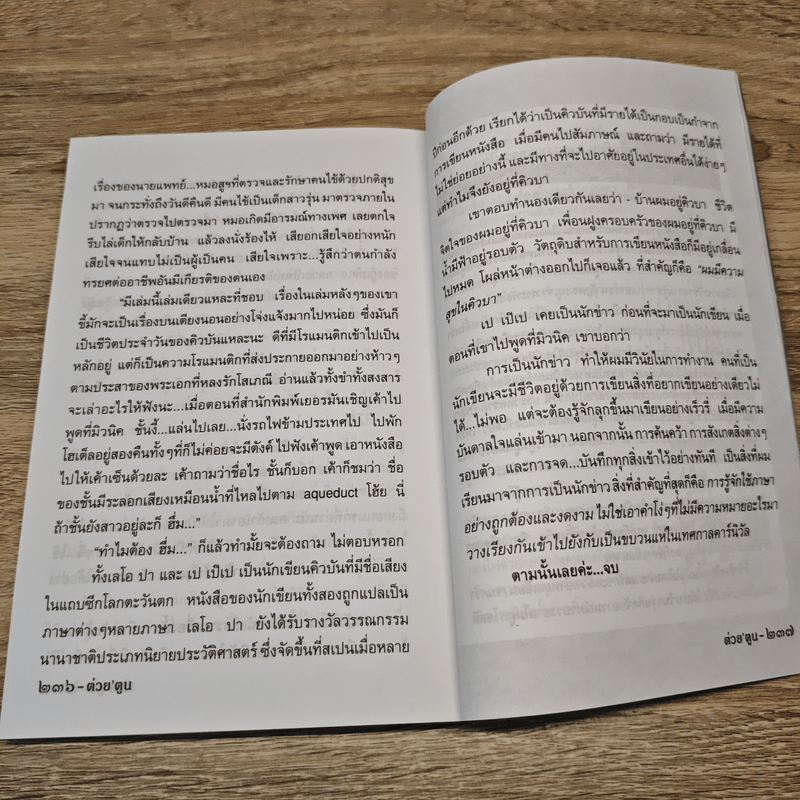 เรื่องของนายแพทย์...หมอสูฯที่ตรวจและรักษาคนไข้ด้วยปกติสุข
มา จนกระทั่งถึงวันดีคืนดี มีคนไข้เป็นเด็กสาวรุ่น มาตรวจภายใน
ปรากฏว่าตรวจไปตรวจมา หมอเกิดมีอารมณ์ทางเพศ เลยตกใจ
รีบไล่เด็กให้กลับบ้าน แล้วลงนั่งร้องไห้ เสียอกเสียใจอย่างหนัก
เสียใจจนแทบไม่เป็นผู้เป็นคน เสียใจเพราะ...รู้สึกว่าตนกำลัง
ทรยศต่ออาชีพอันมีเกียรติของตนเอง
“มีเล่มนี้เล่มเดียวแหละที่ชอบ เรื่องในเล่มหลังๆของเขา
ขี้มักจะเป็นเรื่องบนเตียงนอนอย่างโจ่งแจ้งมากไปหน่อย ซึ่งมันก็
เป็นชีวิตประจำวันของคิวบันแหละนะ ดีที่มีโรแมนติกเข้าไปเป็น
หลักอยู่ แต่ก็เป็นความโรแมนติกที่ส่งประกายออกมาอย่างห้าวๆ
ตามประสาของพระเอกที่หลงรักโสเภณี อ่านแล้วทั้งขำทั้งสงสาร
จะเล่าอะไรให้ฟังนะ...เมื่อตอนที่สำนักพิมพ์เยอรมันเชิญเค้าไป
พูดที่มิวนิค ชั้นงี้...แล่นไปเลย...นั่งรถไฟข้ามประเทศไป ไปพัก
โฮเต็ลอยู่สองคืนทั้งๆที่ก็ไม่ค่อยจะมีตังค์ ไปฟังเค้าพูด เอาหนังสือ
ไปให้เค้าเซ็นด้วยละ เค้าถามว่าชื่อไร ชั้นก็บอก เค้าก็ชมว่า ชื่อ
ของชั้นมีระลอกเสียงเหมือนน้ำที่ไหลไปตาม aqueduct โฮ้ย นี่
ถ้าชั้นยังสาวอยู่ละก็ ฮึ่ม...”
“ทำไมต้อง ฮึ่ม...” ก็แล้วทำมั้ยจะต้องถาม ไม่ตอบหรอก
ทั้งเลโอ ปา และ เป เป๊เป เป็นนักเขียนคิวบันที่มีชื่อเสียง
ในแถบซีกโลกตะวันตก หนังสือของนักเขียนทั้งสองถูกแปลเป็น
ภาษาต่างๆหลายภาษา เลโอ ปา ยังได้รับรางวัลวรรณกรรม
นานาชาติประเภทนิยายประวัติศาสตร์ ซึ่งจัดขึ้นที่สเปนเมื่อหลาย
๒๓๖ – ต่วย’ตูน
ปีก่อนอีกด้วย เรียกได้ว่าเป็นคิวบันที่มีรายได้เป็นกอบเป็นกำจาก
การเขียนหนังสือ เมื่อมีคนไปสัมภาษณ์ และถามว่า มีรายได้ที่
ไม่ใช่ย่อยอย่างนี้ และมีทางที่จะไปอาศัยอยู่ในประเทศอื่นได้ง่ายๆ
แต่ทำไมจึงยังอยู่ที่คิวบา
เขาตอบทำนองเดียวกันเลยว่า - บ้านผมอยู่คิวบา ชีวิต
จิตใจของผมอยู่ที่คิวบา เพื่อนฝูงครอบครัวของผมอยู่ที่คิวบา มี
น้ำมีฟ้าอยู่รอบตัว วัตถุดิบสำหรับการเขียนหนังสือก็มีอยู่เกลื่อน
ไปหมด โผล่หน้าต่างออกไปก็เจอแล้ว ที่สำคัญก็คือ “ผมมีความ
สุขในคิวบา”
เป เป๊เป เคยเป็นนักข่าว ก่อนที่จะมาเป็นนักเขียน เมื่อ
ตอนที่เขาไปพูดที่มิวนิค เขาบอกว่า
การเป็นนักข่าว ทำให้ผมมีวินัยในการทำงาน คนที่เป็น
นักเขียนจะมีชีวิตอยู่ด้วยการเขียนสิ่งที่อยากเขียนอย่างเดียวไม่
ได้...ไม่พอ แต่จะต้องรู้จักลุกขึ้นมาเขียนอย่างเร็วรี่ เมื่อมีความ
บันดาลใจแล่นเข้ามา นอกจากนั้น การค้นคว้า การสังเกตสิ่งต่างๆ
รอบตัว และการจด...บันทึกทุกสิ่งเข้าไว้อย่างทันที เป็นสิ่งที่ผม
เรียนมาจากการเป็นนักข่าว สิ่งที่สำคัญที่สุดก็คือ การรู้จักใช้ภาษา
อย่างถูกต้องและงดงาม ไม่ใช่เอาคำโง่ๆที่ไม่มีความหมายอะไรมา
วางเรียงกันเข้าไปยังกับเป็นขบวนแห่ในเทศกาลคาร์นิวัล
ตามนั้นเลยค่ะ...จบ
ต่วย’ตูน – ๒๓๗